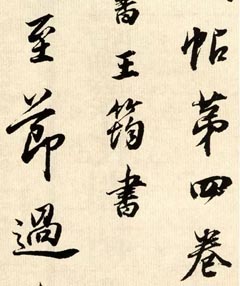 帖第四卷
書王筠書
至節過